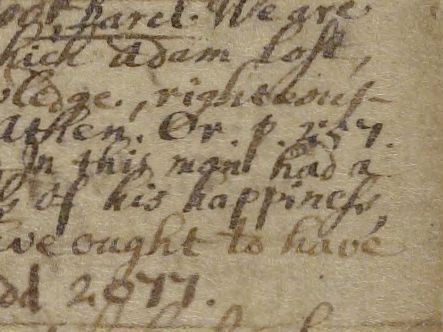 Parcl. We are
hich Adam lost,
ledge, righteous-
Athen. Or. p. 257.
In this man had a
of his happiness,
we ought to have
dd 2077.